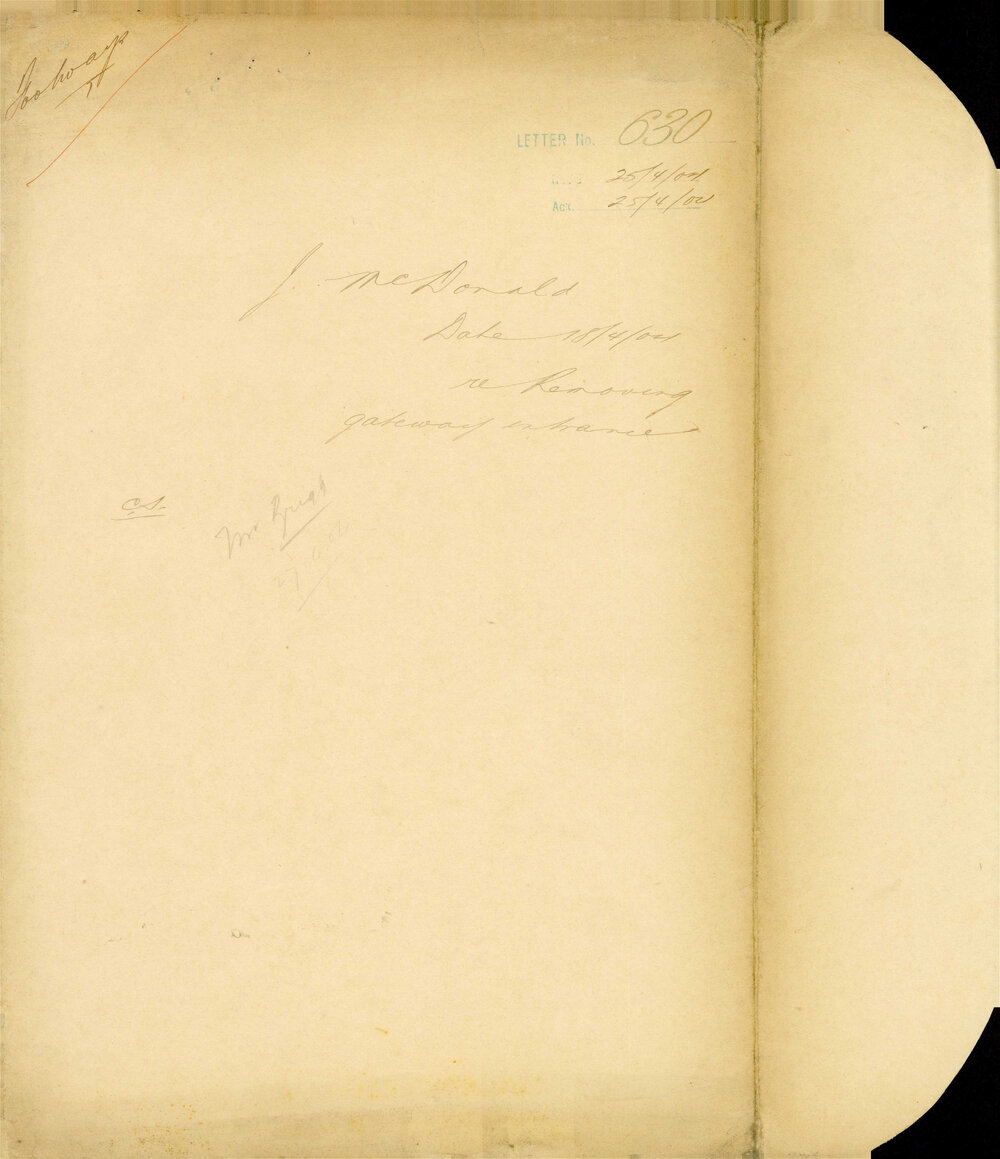 Footways
LETTER No. 630
25/4/04
Ack. 25/4/04
J. McDonald
Date 18/4/04
re Removing
gateway entrance
C.S.
Mr
27